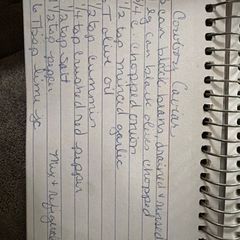 Cowboy Caviar
can black beans, drained & rinsed
lg can black olives chopped
c chopped onion
1/2 tsp minced garlic
T olive oil
1/2 tsp cummin
1/4 tsp crushed red pepper
1/2 tsp salt
1/2 tsp pepper
Tbsp lime jc
Mix & refrigerate